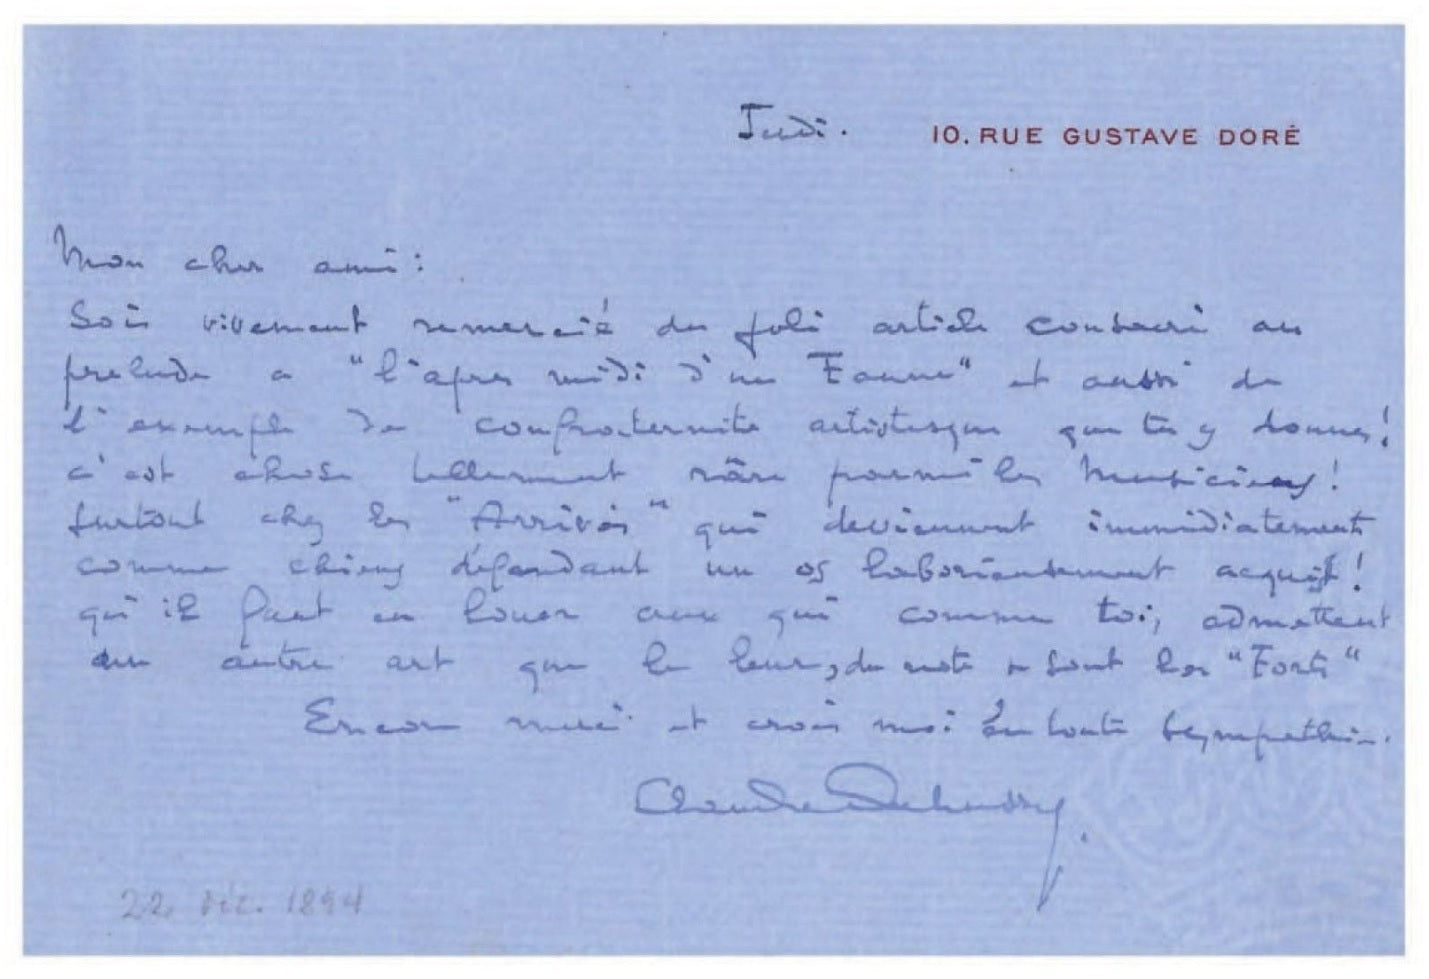 Jeudi. 10. RUE GUSTAVE DORÉ
Mon cher ami:
Sois vivement remercié du joli article consacré au
prelude a "l'apres midi d'un Faune" et aussi de
l'exemple de confraternité artistesque que tu y donnes!
c'est chose tellement râre parmi les Musiciens!
surtout chez les "Arrivés" qui deviennent immédiatement
comme chiens défendant un os laborieusement acquis!
qu'il faut en louer ceux qui comme toi, admettent
un autre art que le leur, du reste ce sont les "Forts"
Encore merci et crois moi en toute sympathie.
Claude Debussy
22 Déc. 1894